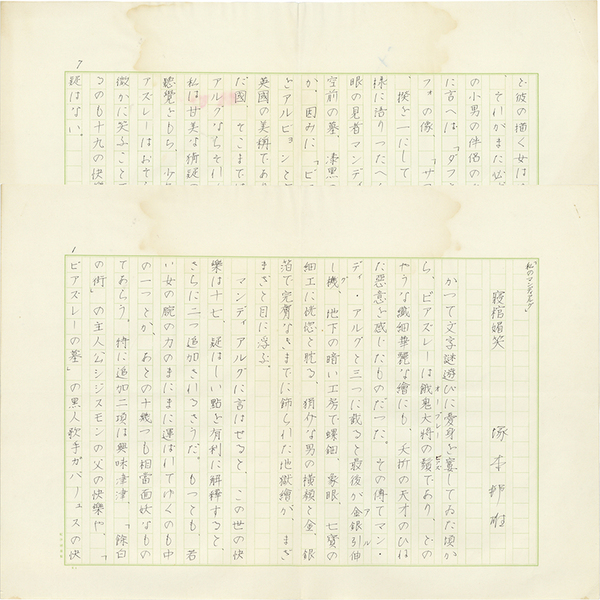 7
を彼の描く女は
の小男の伴侶の
に言へば、「ダフ
フォの像」、「サ
、揆を一にして
眼の見者マンディ
空前の墓、漆黒の
か。因みに「ビ
をアルビョンと
英國の美稱であ
だ國。そこまで
アルグならそれ
私は甘美な猜疑
聴覚をもち、少
アズレーはおそ
微かに笑ふこと
るのも十九の快
疑はない。
1
"私のマンディアルグ"
寝棺嬌笑
塚本邦雄
かつて文字謎遊びに憂身を窶してゐた頃か
ら、ビアズレーは餓鬼大将の類であり、どの
オーブレー・ビアズ
やうな繊細華麗な繪にも、夭折の天才のひは
だ惡意を感じたものだつた。その傳でマン・
ディ・アルグと三つに截ると最後が金銀引伸
アル
グ
し機、地下の暗い工房で螺鈿、象眼、七寶の
細工に恍惚と耽る、稍少な男の横顔と金、銀
箔で完膚なきまでに飾られた地獄繪が、まざ
まざと目に浮ぶ。
マンディアルグに言はせると、この世の快
樂は十七、疑はしい點を有利に解釋すると、
さらに二つ追加されるさうだ。もつとも、若
い女の腕の力のまにまに運ばれてゆくのも中
の一つとか、あとの十幾つも相當面妖なもの
であらう。特に追加二項は興味津津、「餘白
の街」の主人公シジスモンの父の快樂や、「
ビアズレーの墓」の黒人歌手ガバリュスの快